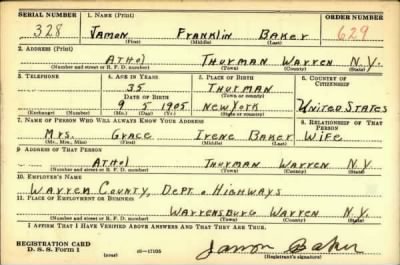 SERIAL NUMBER 1. NAME (Print) ORDER NUMBER
328 Jamon Franklin Baker 629
(First) (Middle) (Last)
2. ADDRESS (Print)
Athol Thurman Warren N.Y.
(Number and street or R. F. D. number) (Town) (County) (State)
3. TELEPHONE 4. AGE IN YEARS 5. PLACE OF BIRTH 6. COUNTRY OF CITIZENSHIP
35 Thurman
DATE OF BIRTH (Town or county)
9 5 1905 New York United States
(Exchange) (Number) (Mo.) (Day) (Yr.) (State or country)
7. NAME OF PERSON WHO WILL ALWAYS KNOW YOUR ADDRESS 8. RELATIONSHIP OF THAT PERSON
Mrs. Grace Irene Baker Wife
(Mr., Mrs., Miss) (First) (Middle) (Last)
9. ADDRESS OF THAT PERSON
Athol Thurman Warren N.Y.
(Number and street or R. F. D. number) (Town) (County) (State)
10. EMPLOYER'S NAME
Warren County, Dept. o Highways
11. PLACE OF EMPLOYMENT OR BUSINESS
Warrensburg Warren N.Y.
(Number and street or R. F. D. number) (Town) (County) (State)
I AFFIRM THAT I HAVE VERIFIED ABOVE ANSWERS AND THAT THEY ARE TRUE.
REGISTRATION CARD
D. S. S. Form 1 (over) 16—17105 Jamon Baker
(Registrant's signature)